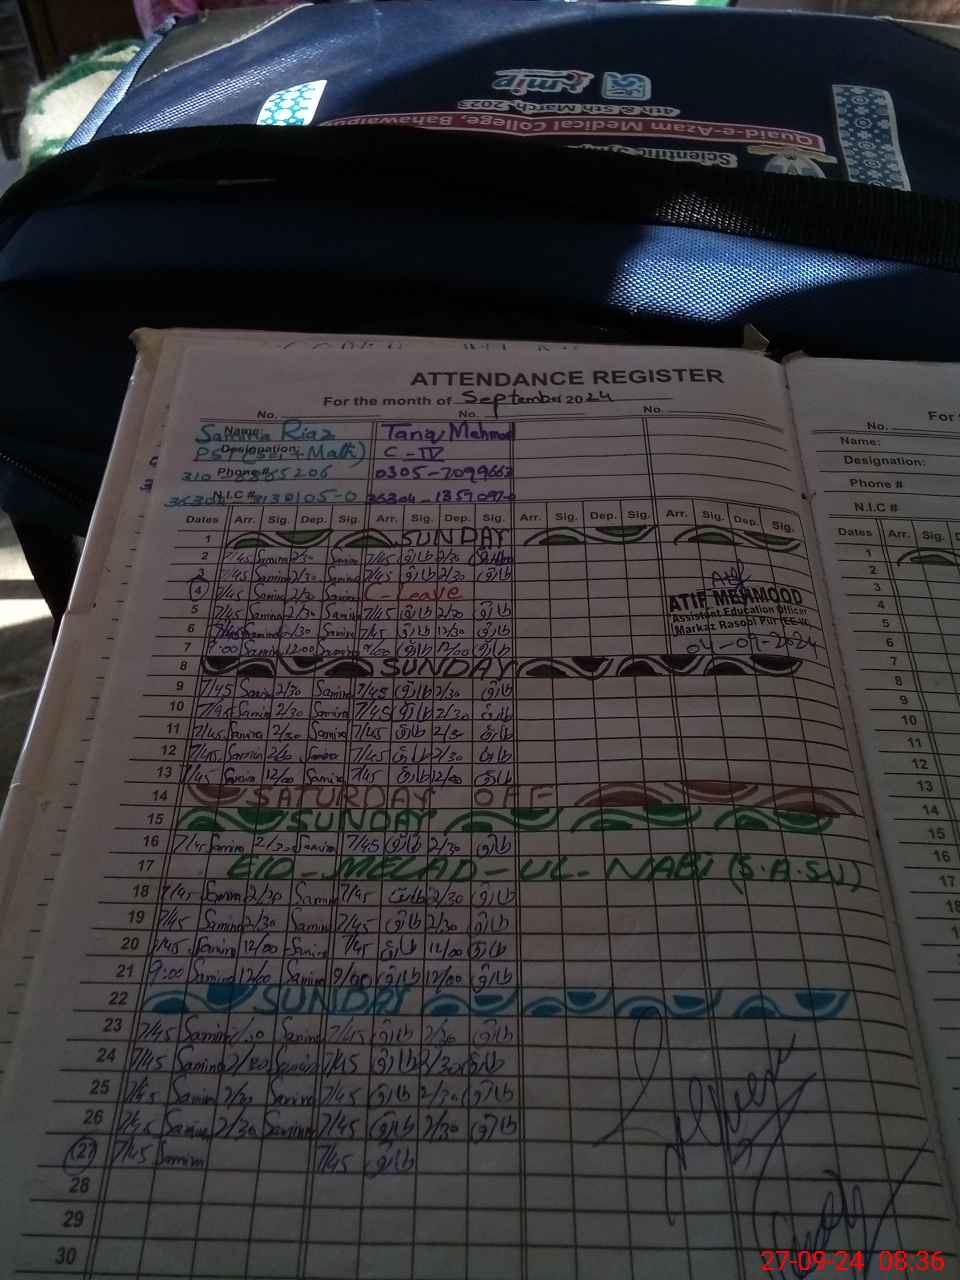 imip
4th & 5th March, 2023
Quaid-e-Azam Medical College, Bahawalpur
Scientific
ATTENDANCE REGISTER
For the month of September 2024
No. No. No.
Name: Samina Riaz Tariq Mehmood
Designation: PST (Sci + Math) C-IV
Phone # 0305-7099663
N.I.C #
Dates Arr. Sig. Dep. Sig. Arr. Sig. Dep. Sig. Arr. Sig. Dep. Sig. Arr. Sig. Dep. Sig.
1 SUNDAY
2 7/45 Samina 2/30 Samina 7/45 طارق 2/30
3 7/45 Samina 2/30 Samina 7/45 طارق 2/30 طارق
4 7/45 Samina 2/30 Samina C-Leave
5 7/45 Samina 2/30 Samina 7/45 طارق 2/30 طارق
6 7/45 Samina 12/30 Samina 7/45 طارق 12/30 طارق
7 9:00 Samina 12:00 Samina 9/00 طارق 12/00 طارق
ATIF MEHMOOD
Assistant Education Officer
Markaz Rasool Pur
04-09-2024
8 SUNDAY
9 7/45 Samina 2/30 Samina 7/45 طارق 2/30 طارق
10 7/45 Samina 2/30 Samina 7/45 طارق 2/30 طارق
11 7/45 Samina 2/30 Samina 7/45 طارق 2/30 طارق
12 7/45 Samina 2/30 Samina 7/45 طارق 2/30 طارق
13 7/45 Samina 12/00 Samina 7/45 طارق 12/00 طارق
14 SATURDAY OFF
15 SUNDAY
16 7/45 Samina 2/30 Samina 7/45 طارق 2/30 طارق
17 EID-MELAD-UL-NABI (S.A.S.W)
18 7/45 Samina 2/30 Samina 7/45 طارق 2/30 طارق
19 7/45 Samina 2/30 Samina 7/45 طارق 2/30 طارق
20 7/45 Samina 12/00 Samina 7/45 طارق 12/00 طارق
21 9:00 Samina 12/00 Samina 9/00 طارق 12/00 طارق
22 SUNDAY
23 7/45 Samina 2/30 Samina 7/45 طارق 2/30 طارق
24 7/45 Samina 2/30 Samina 7/45 طارق 2/30 طارق
25 7/45 Samina 2/30 Samina 7/45 طارق 2/30 طارق
26 7/45 Samina 2/30 Samina 7/45 طارق 2/30 طارق
27 7/45 Samina 7/45 طارق
28
29
30
No.
Name:
Designation:
Phone #
N.I.C #
Dates Arr. Sig.
1
2
3
4
5
6
7
8
9
10
11
12
13
14
15
16
17
18
27-09-24 08:36